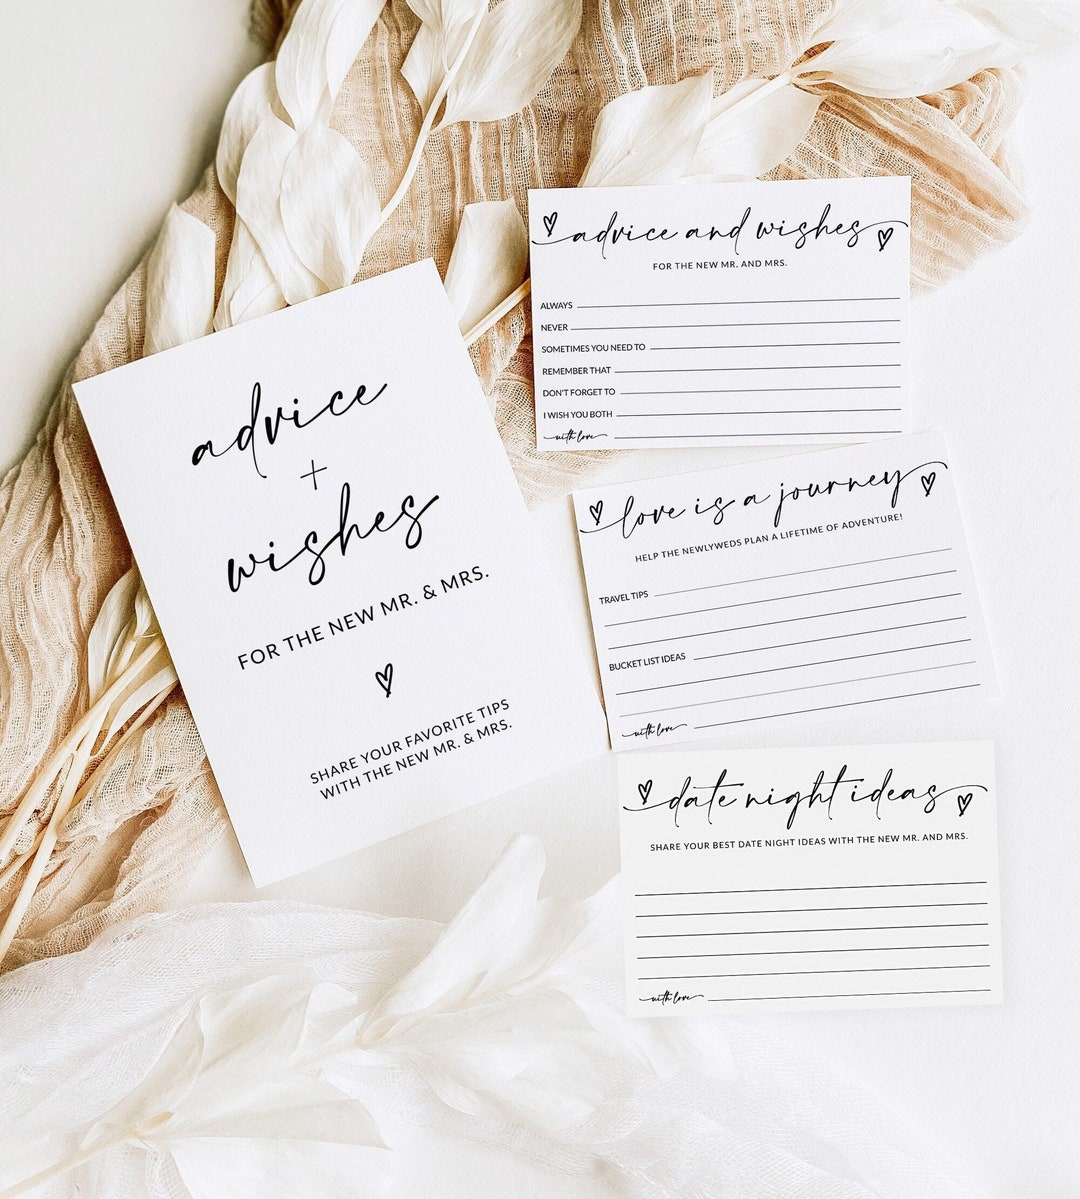 advice
+
wishes
FOR THE NEW MR. & MRS.
SHARE YOUR FAVORITE TIPS
WITH THE NEW MR. & MRS.
advice and wishes
FOR THE NEW MR. AND MRS.
ALWAYS
NEVER
SOMETIMES YOU NEED TO
REMEMBER THAT
DON'T FORGET TO
I WISH YOU BOTH
with love
love is a journey
HELP THE NEWLYWEDS PLAN A LIFETIME OF ADVENTURE!
TRAVEL TIPS
BUCKET LIST IDEAS
with love
date night ideas
SHARE YOUR BEST DATE NIGHT IDEAS WITH THE NEW MR. AND MRS.
with love